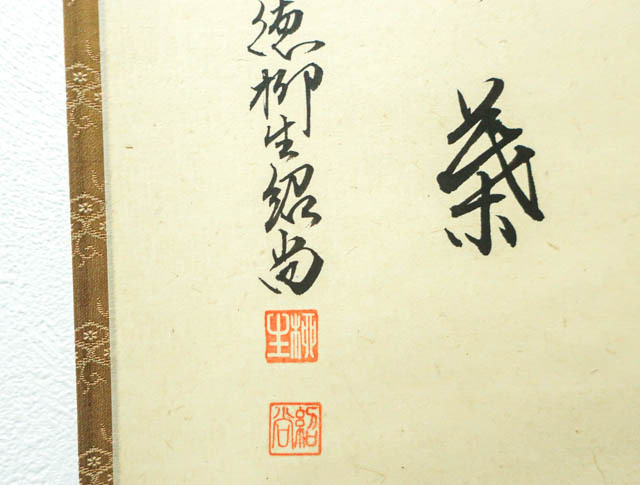 葉
德柳生紹尚
柳生
紹尚